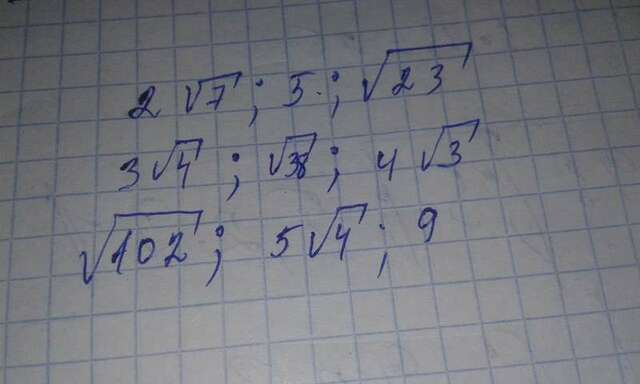 2√7; 5; √23
3√4; √38; 4√3
√102; 5√4; 9